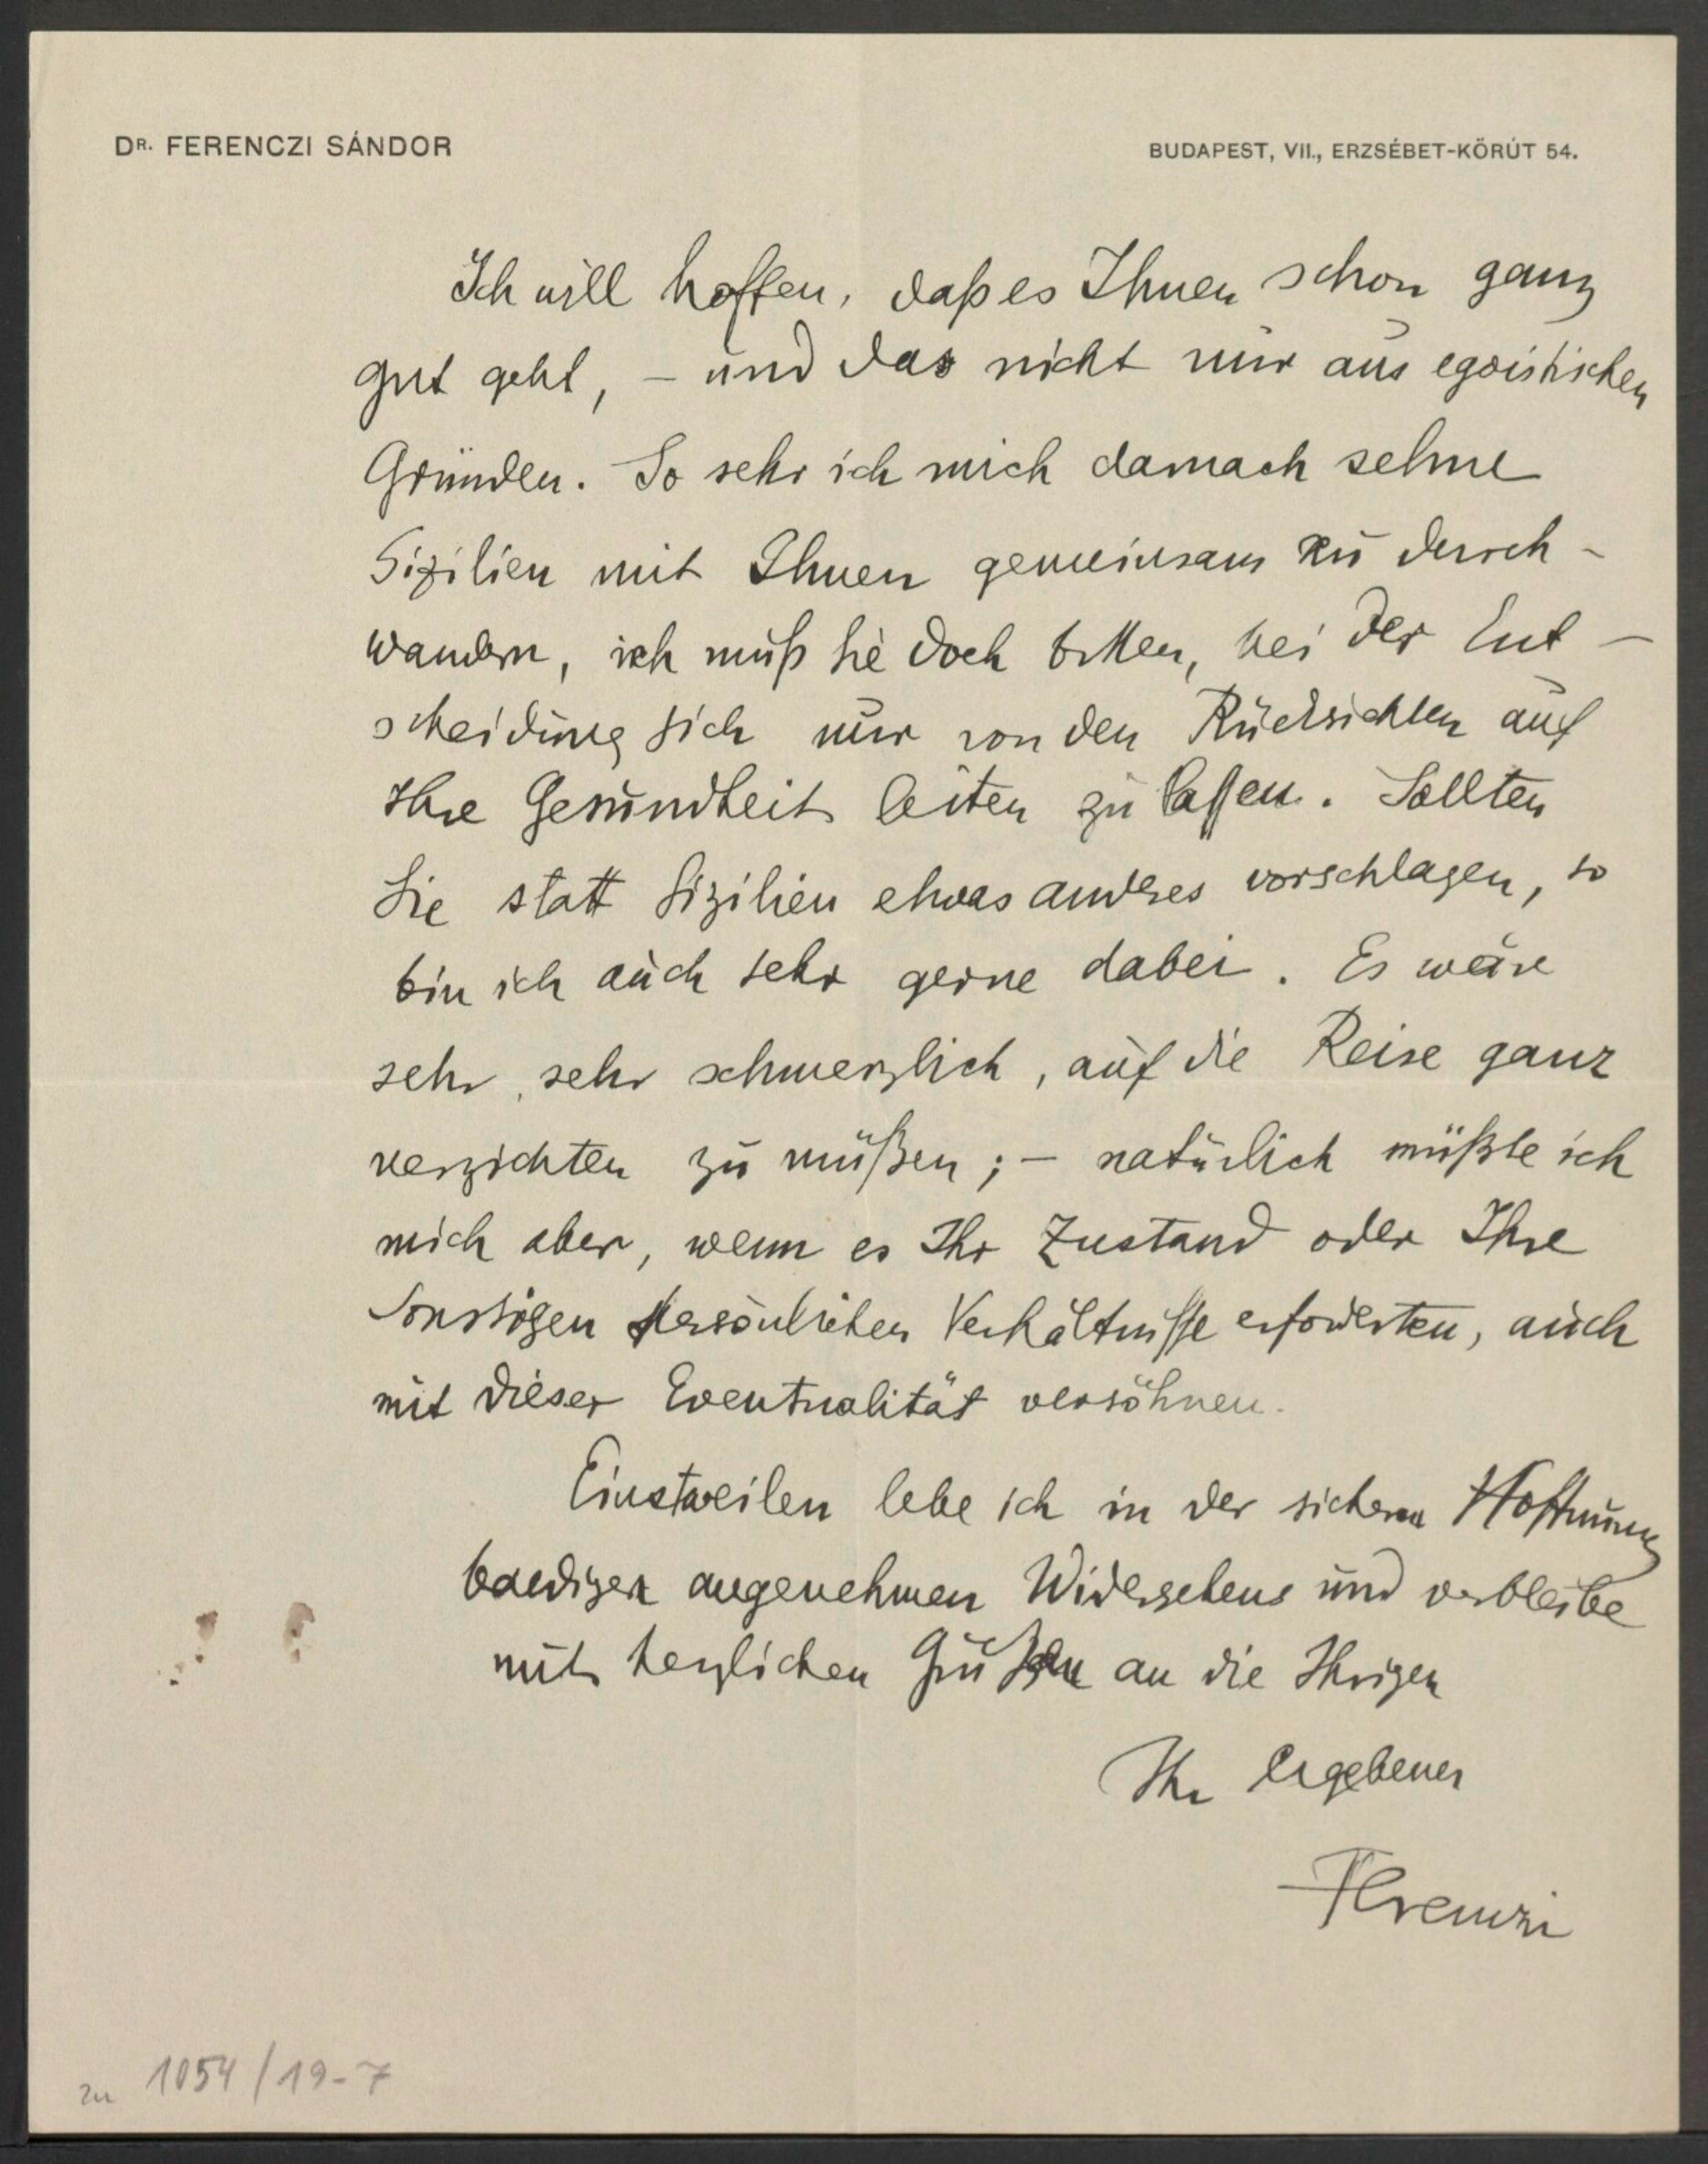 DR. FERENCZI SÁNDOR
BUDAPEST, VII., ERZSÉBET-KÖRÚT 54.
Ich will hoffen, daß es Ihnen schon ganz
gut geht, – und das nicht nur aus egoistischen
Gründen. So sehr ich mich darnach sehne
Sizilien mit Ihnen gemeinsam zu durch-
wandern, ich muß Sie doch bitten, bei der Ent-
scheidung sich nur von den Rücksichten auf
Ihre Gesundheit leiten zu lassen. Sollten
Sie statt Sizilien etwas anderes vorschlagen, so
bin ich auch sehr gerne dabei. Es wäre
sehr, sehr schmerzlich, auf die Reise ganz
verzichten zu müßen; – natürlich müßte ich
mich aber, wenn es Ihr Zustand oder Ihre
sonstigen persönlichen Verhältnisse erforderten, auch
mit dieser Eventualität versöhnen.
Einstweilen lebe ich in der sicheren Hoffnung
baldigen angenehmen Widersehens und verbleibe
mit herzlichen Grüßen an die Ihrigen
Ihr ergebener
Ferenczi
zu 1054/19-7